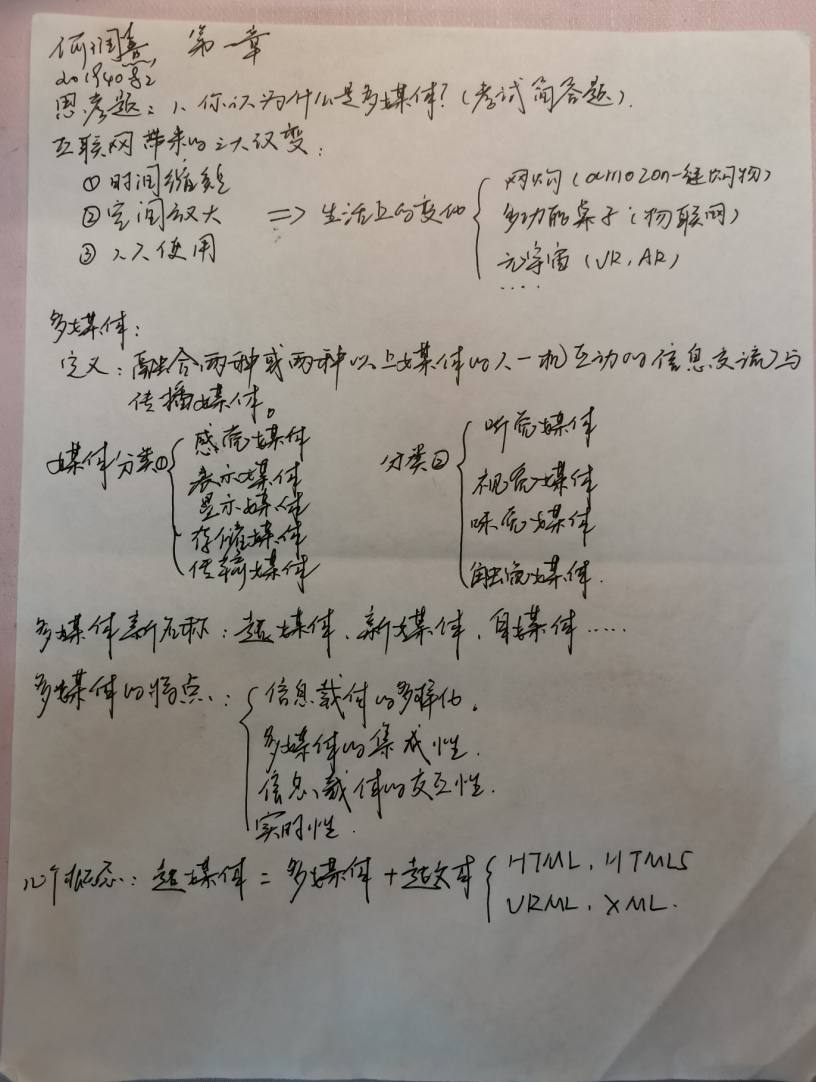 何润喜, 第一章
20194082
思考题: 1、你认为什么是多媒体?(考试简答题).
互联网带来的三大改变:
① 时间缩短
② 空间放大 => 生活上的变化
③ 人人使用
网购(amozon一键购物)
多功能桌子(物联网)
元宇宙(VR, AR)
....
多媒体:
定义: 融合两种或两种以上媒体的人一机互动的信息交流与
传播媒体。
媒体分类①
感觉媒体
表示媒体
显示媒体
存储媒体
传输媒体
分类②
听觉媒体
视觉媒体
味觉媒体
触觉媒体.
多媒体新名称: 超媒体、新媒体、自媒体.....
多媒体的特点:
信息载体的多样化.
多媒体的集成性.
信息载体的交互性.
实时性.
几个概念: 超媒体 = 多媒体 + 超文本
HTML, HTML5
VRML, XML.